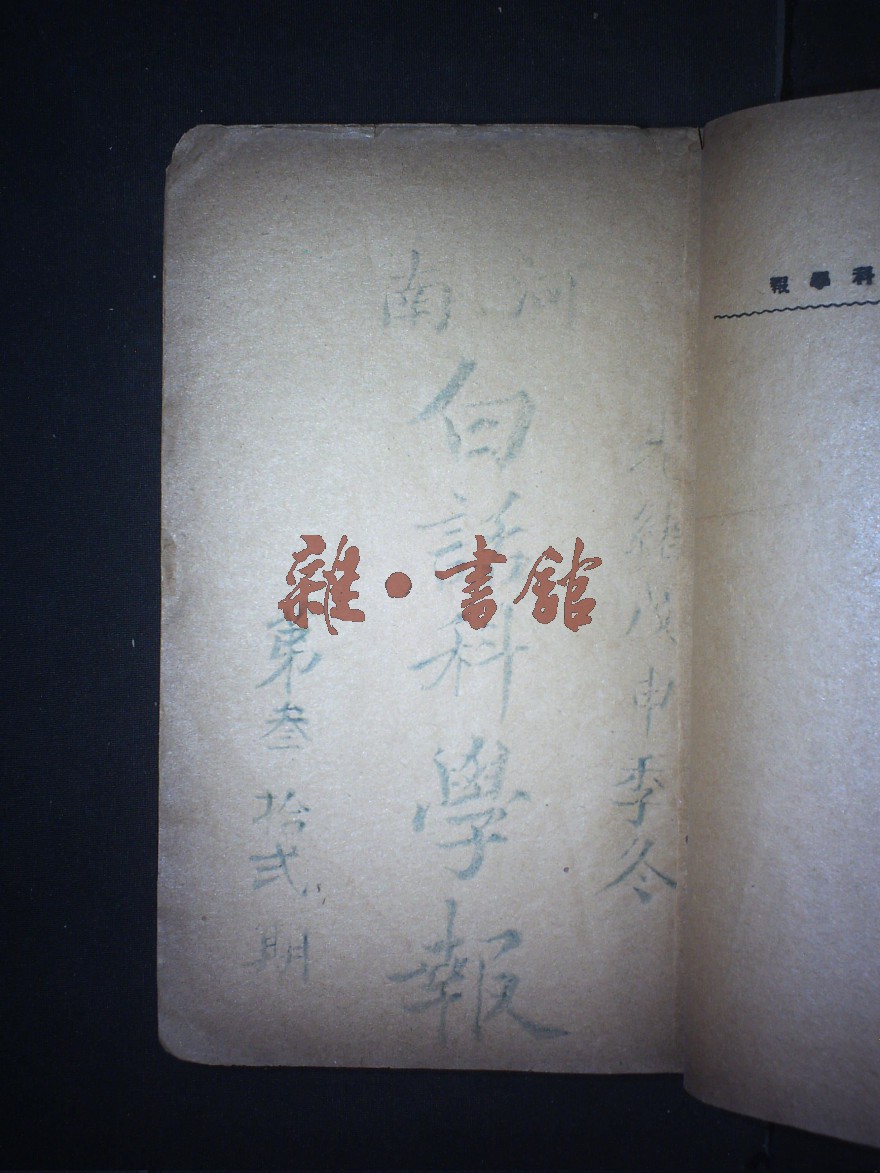 光緒戊申季冬
河南
白話科學報
第叁拾弍期
雜·書館
科學報